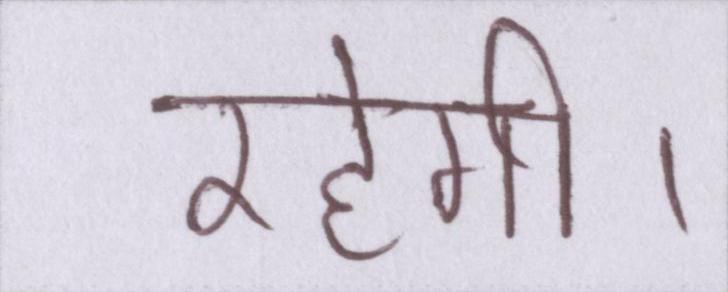 रहेगी।